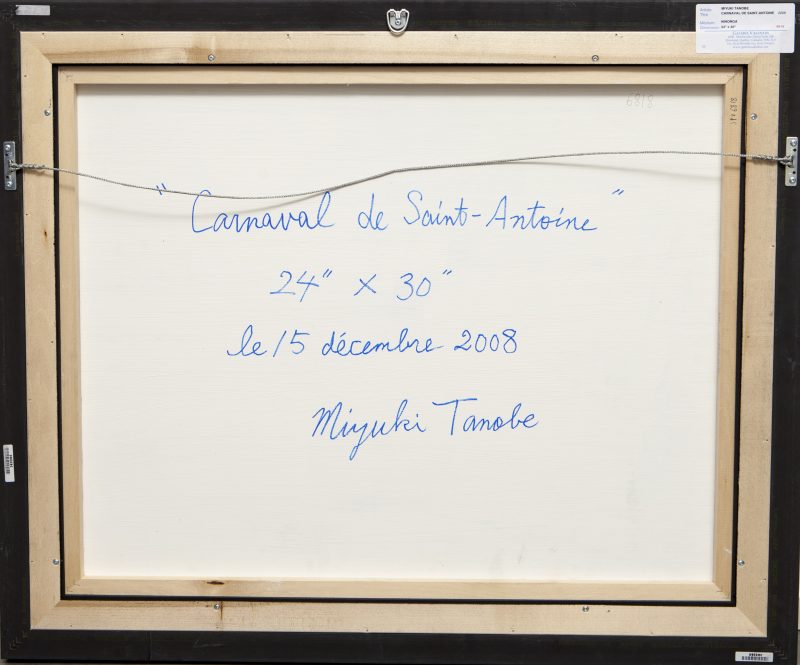 MIYUKI TANOBE
CARNAVAL DE SAINT-ANTOINE
NIHONGA
24" X 30"
6818
" Carnaval de Saint-Antoine "
24" X 30"
le 15 décembre 2008
Miyuki Tanobe